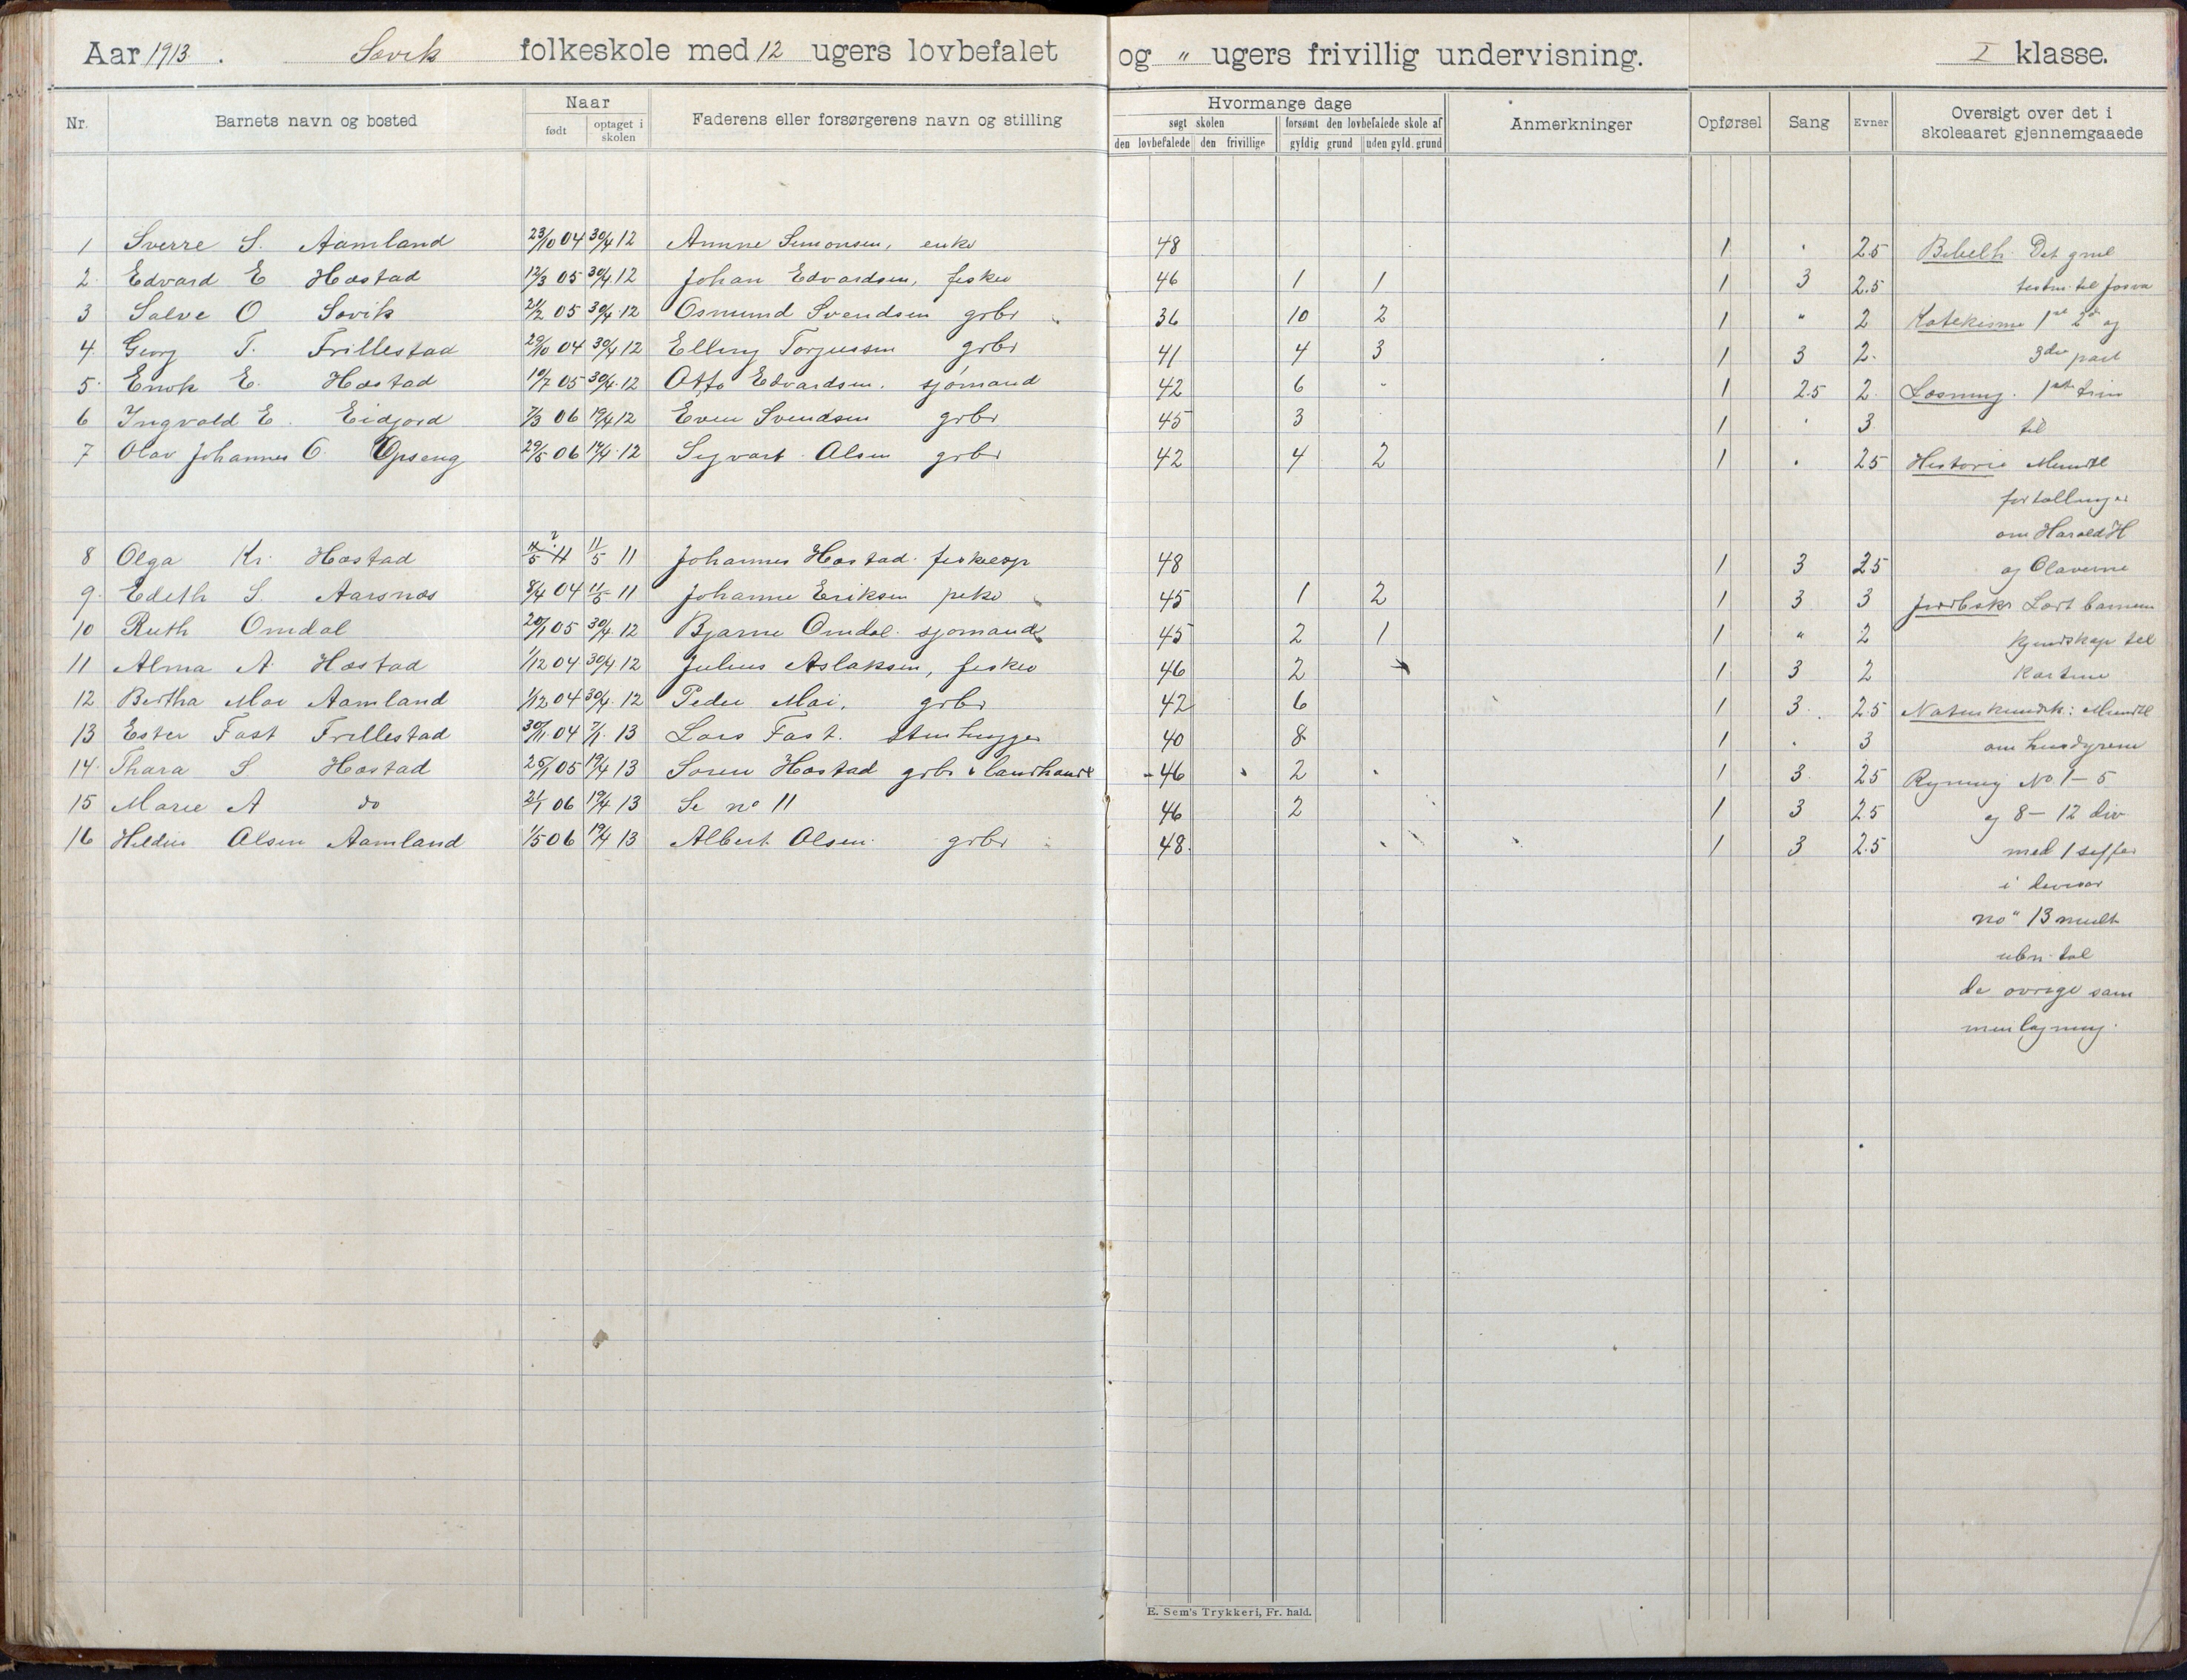 Aar 1913. Søvik folkeskole med 12 ugers lovbefalet og " ugers frivillig undervisning. I klasse.
Nr. Barnets navn og bosted Naar født optaget i skolen Faderens eller forsørgerens navn og stilling Hvormange dage søgt skolen den lovbefalede den frivillige forsømt den lovbefalede skole af gyldig grund uden gyld. grund Anmerkninger Opførsel Sang Evner Oversigt over det i skoleaaret gjennemgaaede
1 Sverre S. Aamland 23/10 04 30/4 12 Anne Simonsen, enke 48 1 2.5 Bibelh. Det gml
2 Edvard E Hæstad 12/3 05 30/4 12 Johan Edvardsen, fisker 46 1 1 1 3 2.5 testm. til Josva
3 Salve O Søvik 05 30/4 12 Osmund Svendsen grbr 36 10 2 1 " 2 Katekisme 1ste 2den og
4 Georg T. Frillestad 29/10 04 30/4 12 Elling Torjussen grbr 41 4 3 1 3 2 3die part
5 Enok E. Hæstad 10/7 05 30/4 12 Otto Edvardsen. sjømand 42 6 - 1 2.5 2 Læsning. 1ste trin
6 Ingvald E. Eidjord 7/3 06 19/4 12 Even Svendsen grbr 45 3 1 3 til
7 Olav Johannes O. Opseng 29/5 06 19/4 12 Sigvart Olsen grbr 42 4 2 1 2.5 Historie Mundtl
fortællinger
om Harald H
8 Olga Kr. Hæstad 11/5 11 Johannes Hæstad. fiskeop 48 1 3 2.5 og Olaverne
9 Edith S Aarsnæs 8/4 04 11/5 11 Johanne Eriksen pike 45 1 2 1 3 3 Jordbskr Lært barnene
10 Ruth Omdal 20/1 05 30/4 12 Bjarne Omdal. sjømand 45 2 1 1 " 2 kjendskap til
11 Alma A. Hæstad 1/12 04 30/4 12 Julius Aslaksen, fisker 46 2 1 3 2 kartene
12 Bertha Moi Aamland 1/12 04 30/4 12 Peder Moi, grbr 42 6 1 3 2.5 Naturkundsk: Mundtl
13 Ester Fast Frillestad 30/11 04 7/1 13 Lars Fast. stenhugger 40 8 1 3 om husdyrene
14 Thora S Hæstad 25/1 05 19/4 13 Søren Hæstad grbr & landhandl 46 2 1 3 2.5 Regning No 1-5
15 Marie A do 21/1 06 19/4 13 Se no 11 46 2 1 3 2.5 og 8-12 div
16 Hildur Olsen Aamland 1/5 06 19/4 13 Albert Olsen. grbr 48 1 3 2.5 med 1 siffer
i divisor
no 13 mult
ubn. tal
de øvrige sam
menlægning.
E. Sem's Trykkeri, Fr. hald.